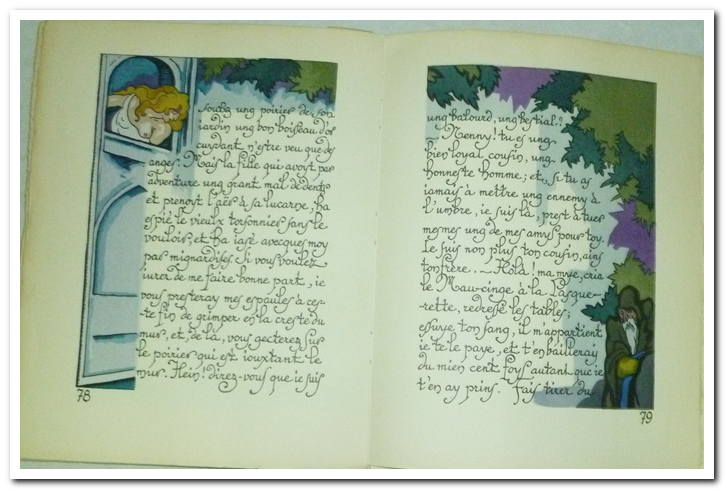 soubz ung poirier de son
iardin ung bon boiseau d'or
cuydant n'estre veu que des
anges. Mais la fille qui avoyt par
adventure ung grant mal de dents
et prenoyt l'aër à sa lucarne, ha
espié le vieulx torsonnier sans le
vouloir, et ha iasé avecques moy
par mignardise. Si vous voulez
iurer de me faire bonne part, ie
vous presteray mes espaules à ces-
te fin de grimper en la creste du
mur, et, de là, vous gecterez sur
le poirier qui est iouxtant le
mur. Hein! direz-vous que ie suis
78
ung balourd, ung bestial?
Nenny! tu es ung
bien loyal cousin, ung
honneste homme; et, si tu as
iamais à mettre ung ennemy à
l'umbre, ie suis là, prest à tuer
mesmes ung de mes amys pour toy.
Ie suis non plus ton cousin, ains
ton frère. ~ Holà! ma mye, cria
le Mau-cinge à la Pasque-
rette, redresse les tables;
essuye ton sang, il m'appartient
ie te le paye, et t'en bailleray
du mien cent foys autant que ie
t'en ay prins. Fais tirer du
79